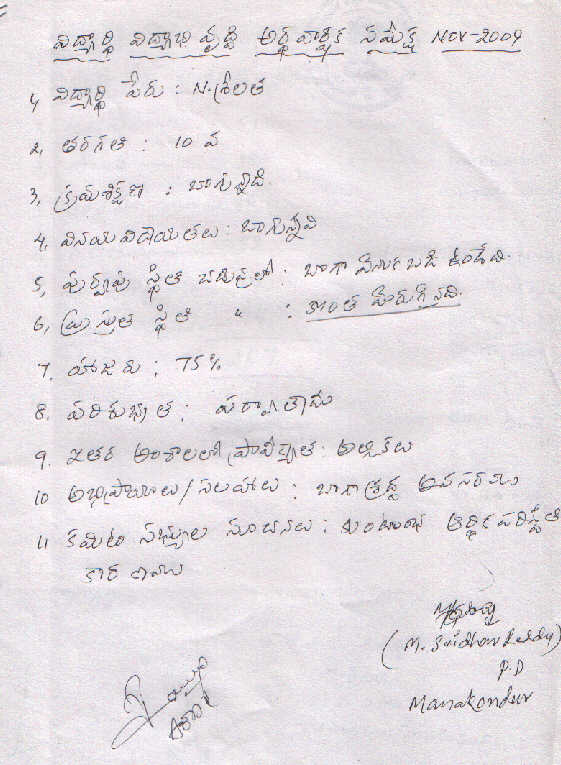 విద్యార్థి విద్యాభి వృద్ధి అర్థవార్షిక సమీక్ష NOV-2009
1, విద్యార్థి పేరు : N. శ్రీలత
2, తరగతి : 10 వ
3, క్రమశిక్షణ : బాగున్నాది.
4. వినయ విధేయతలు : బాగున్నవి
5, పూర్వపు స్థితి చదువులో : బాగా వెనుకబడి ఉండేది.
6, ప్రస్తుత స్థితి " : కొంత మెరుగైనది.
7. హాజరు : 75%
8. పరిశుభ్రత : పర్వాలేదు
9. ఇతర అంశాలలో ప్రావీణ్యత : అల్లికలు
10 అభిప్రాయాలు/సలహాలు : బాగా శ్రద్ద అవసరము
11 కమిటి సభ్యుల సూచనలు : కుటుంబ ఆర్థిక పరిస్థితి
కారణము
(M. Sridhar Reddy)
P.D
Manakondur